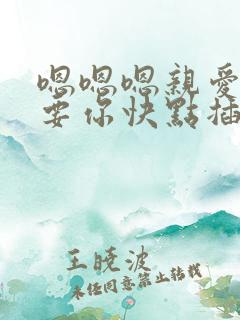 嗯嗯嗯親愛
要你快點插
王曉波
未經同意禁止轉載